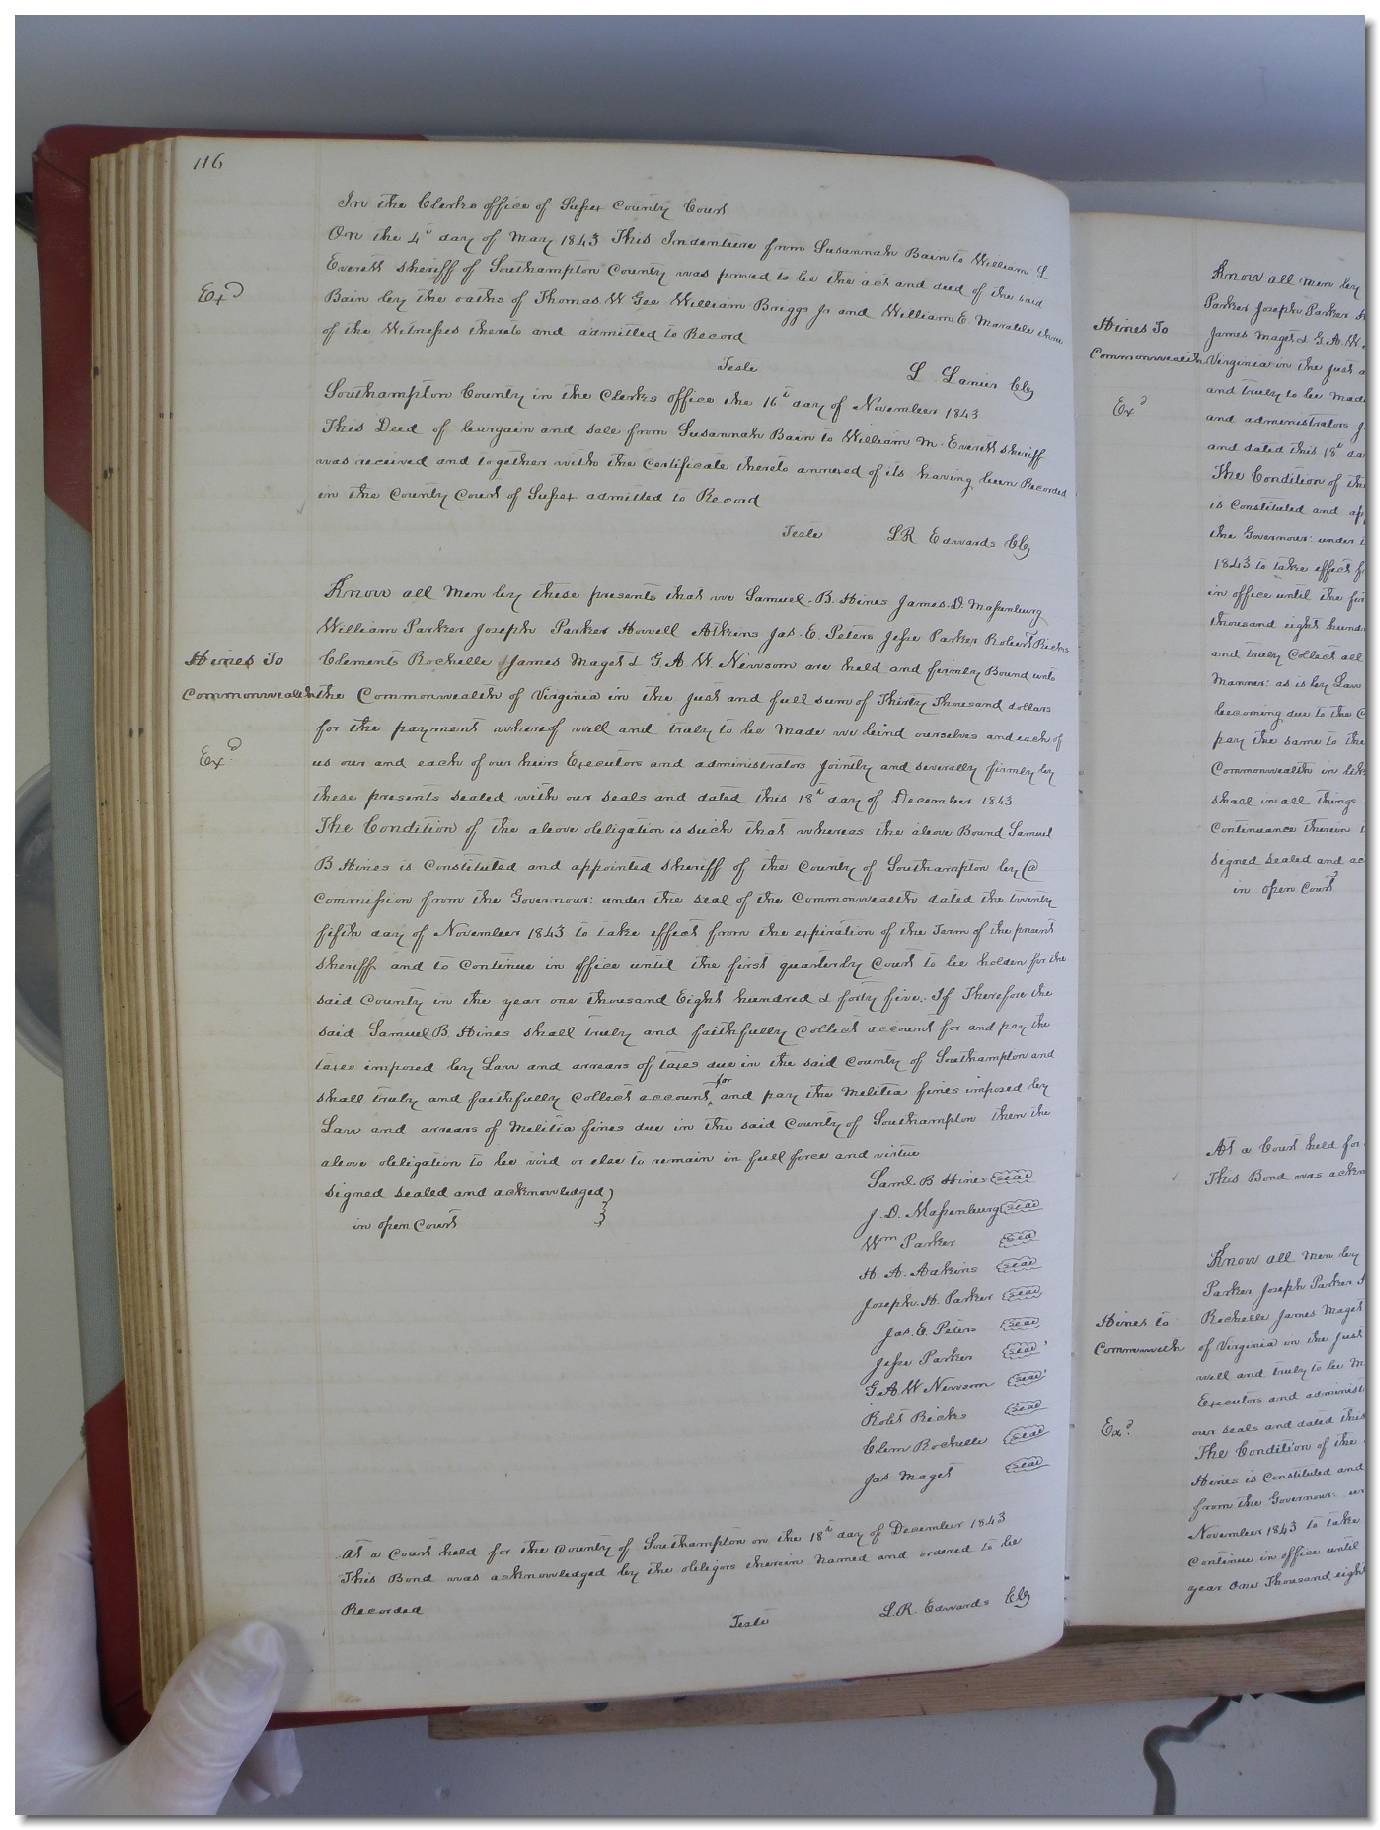 116
In the Clerks office of Sussex County Court
On the 4th day of May 1843 This Indenture from Susannah Bain to William
Everett sheriff of Southampton County was proved to be the act and deed of the said
Exd
Bain by the oaths of Thomas W Gee William Briggs Jr and William E. Marable three
of the Witnesses thereto and admitted to Record
Teste L Lanier Clk
Southampton County in the Clerks office the 16th day of November 1843
This Deed of bargain and sale from Susannah Bain to William M. Everett sheriff
was received and together with the Certificate thereto annexed of its having been Recorded
in the County Court of Sussex admitted to Record
Teste L.R Edwards Clk
Know all Men by these presents that we Samuel. B. Hines James. D. Massenburg
William Parker Joseph Parker Howell Atkins Jas. E. Peters Jesse Parker Robert Ricks
Hines To
Clements Rochelle James Maget & G. A W. Newsom are held and firmly Bound unto
Commonwealth
the Commonwealth of Virginia in the just and full sum of Thirty Thousand dollars
for the payment whereof well and truly to be Made we bind ourselves and each of
Exd
us our and each of our heirs Executors and administrators jointly and severally firmly by
these presents sealed with our seals and dated this 18th day of December 1843
The Condition of the above obligation is such that whereas the above Bound Samuel
B Hines is Constituted and appointed sheriff of the County of Southampton by @
Commission from the Governour: under the seal of the Commonwealth dated the twenty
fifth day of November 1843 to take effect from the expiration of the Term of the present
sheriff and to Continue in office until the first quarterly Court to be holden for the
said County in the year one thousand Eight hundred & forty five. If Therefore the
said Samuel B Hines shall truly and faithfully collect account for and pay the
taxes imposed by Law and arrears of taxes due in the said County of Southampton and
shall truly and faithfully Collect account for and pay the Melitia fines imposed by
Law and arrears of Melitia fines due in the said County of Southampton then the
above obligation to be void or else to remain in full force and virtue
signed sealed and acknowledged }
in open Court
Saml. B Hines seal
J. D. Massenburg seal
Wm Parker seal
H. A. Adkins seal
Joseph. H. Parker seal
Jas. E. Peters seal
Jesse Parker seal
G. A W Newsom seal
Robt Ricks seal
Clem Rochelle seal
Jas Maget seal
At a Court held for the County of Southampton on the 18th day of December 1843
This Bond was acknowledged by the obligors therein Named and ordered to be
Recorded
Teste L.R. Edwards Clk
Know all Men by
Parker Joseph Parker
Hines To
James Maget & G. A. W.
Commonwealth
Virginia in the just
and truly to be Made
Exd
and administrators
and dated this 18th
The Condition of the
is Constituted and
the Governour: under
1843 to take effect
in office until the
thousand eight
and truly Collect all
Manner: as is by Law
becoming due to the
pay the same to the
Commonwealth in
shall in all things
Continuance therein
signed sealed and
in open Court
At a Court held for
This Bond was
Know all Men by
Parker Joseph Parker
Hines to
Rochelle James Maget
of Virginia in the just
well and truly to be
Executors and
Exd
our seals and dated this
The Condition of the
Hines is Constituted and
from the Governour:
November 1843 to take
Continue in office until
year One Thousand